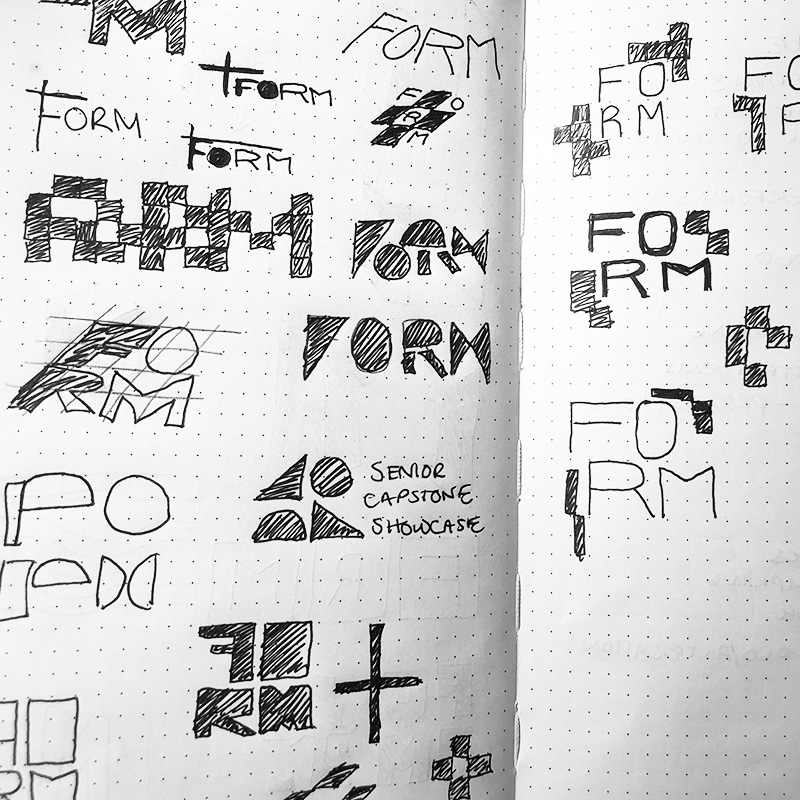 M
FORM
FORM
FORM
FORM
FORM
FORM
FORM
FORM
FO
RM
FORM
SENIOR
CAPSTONE
SHOWCASE
FO
RM
RM
FO
RM
FO
RM
FO
RM
FO